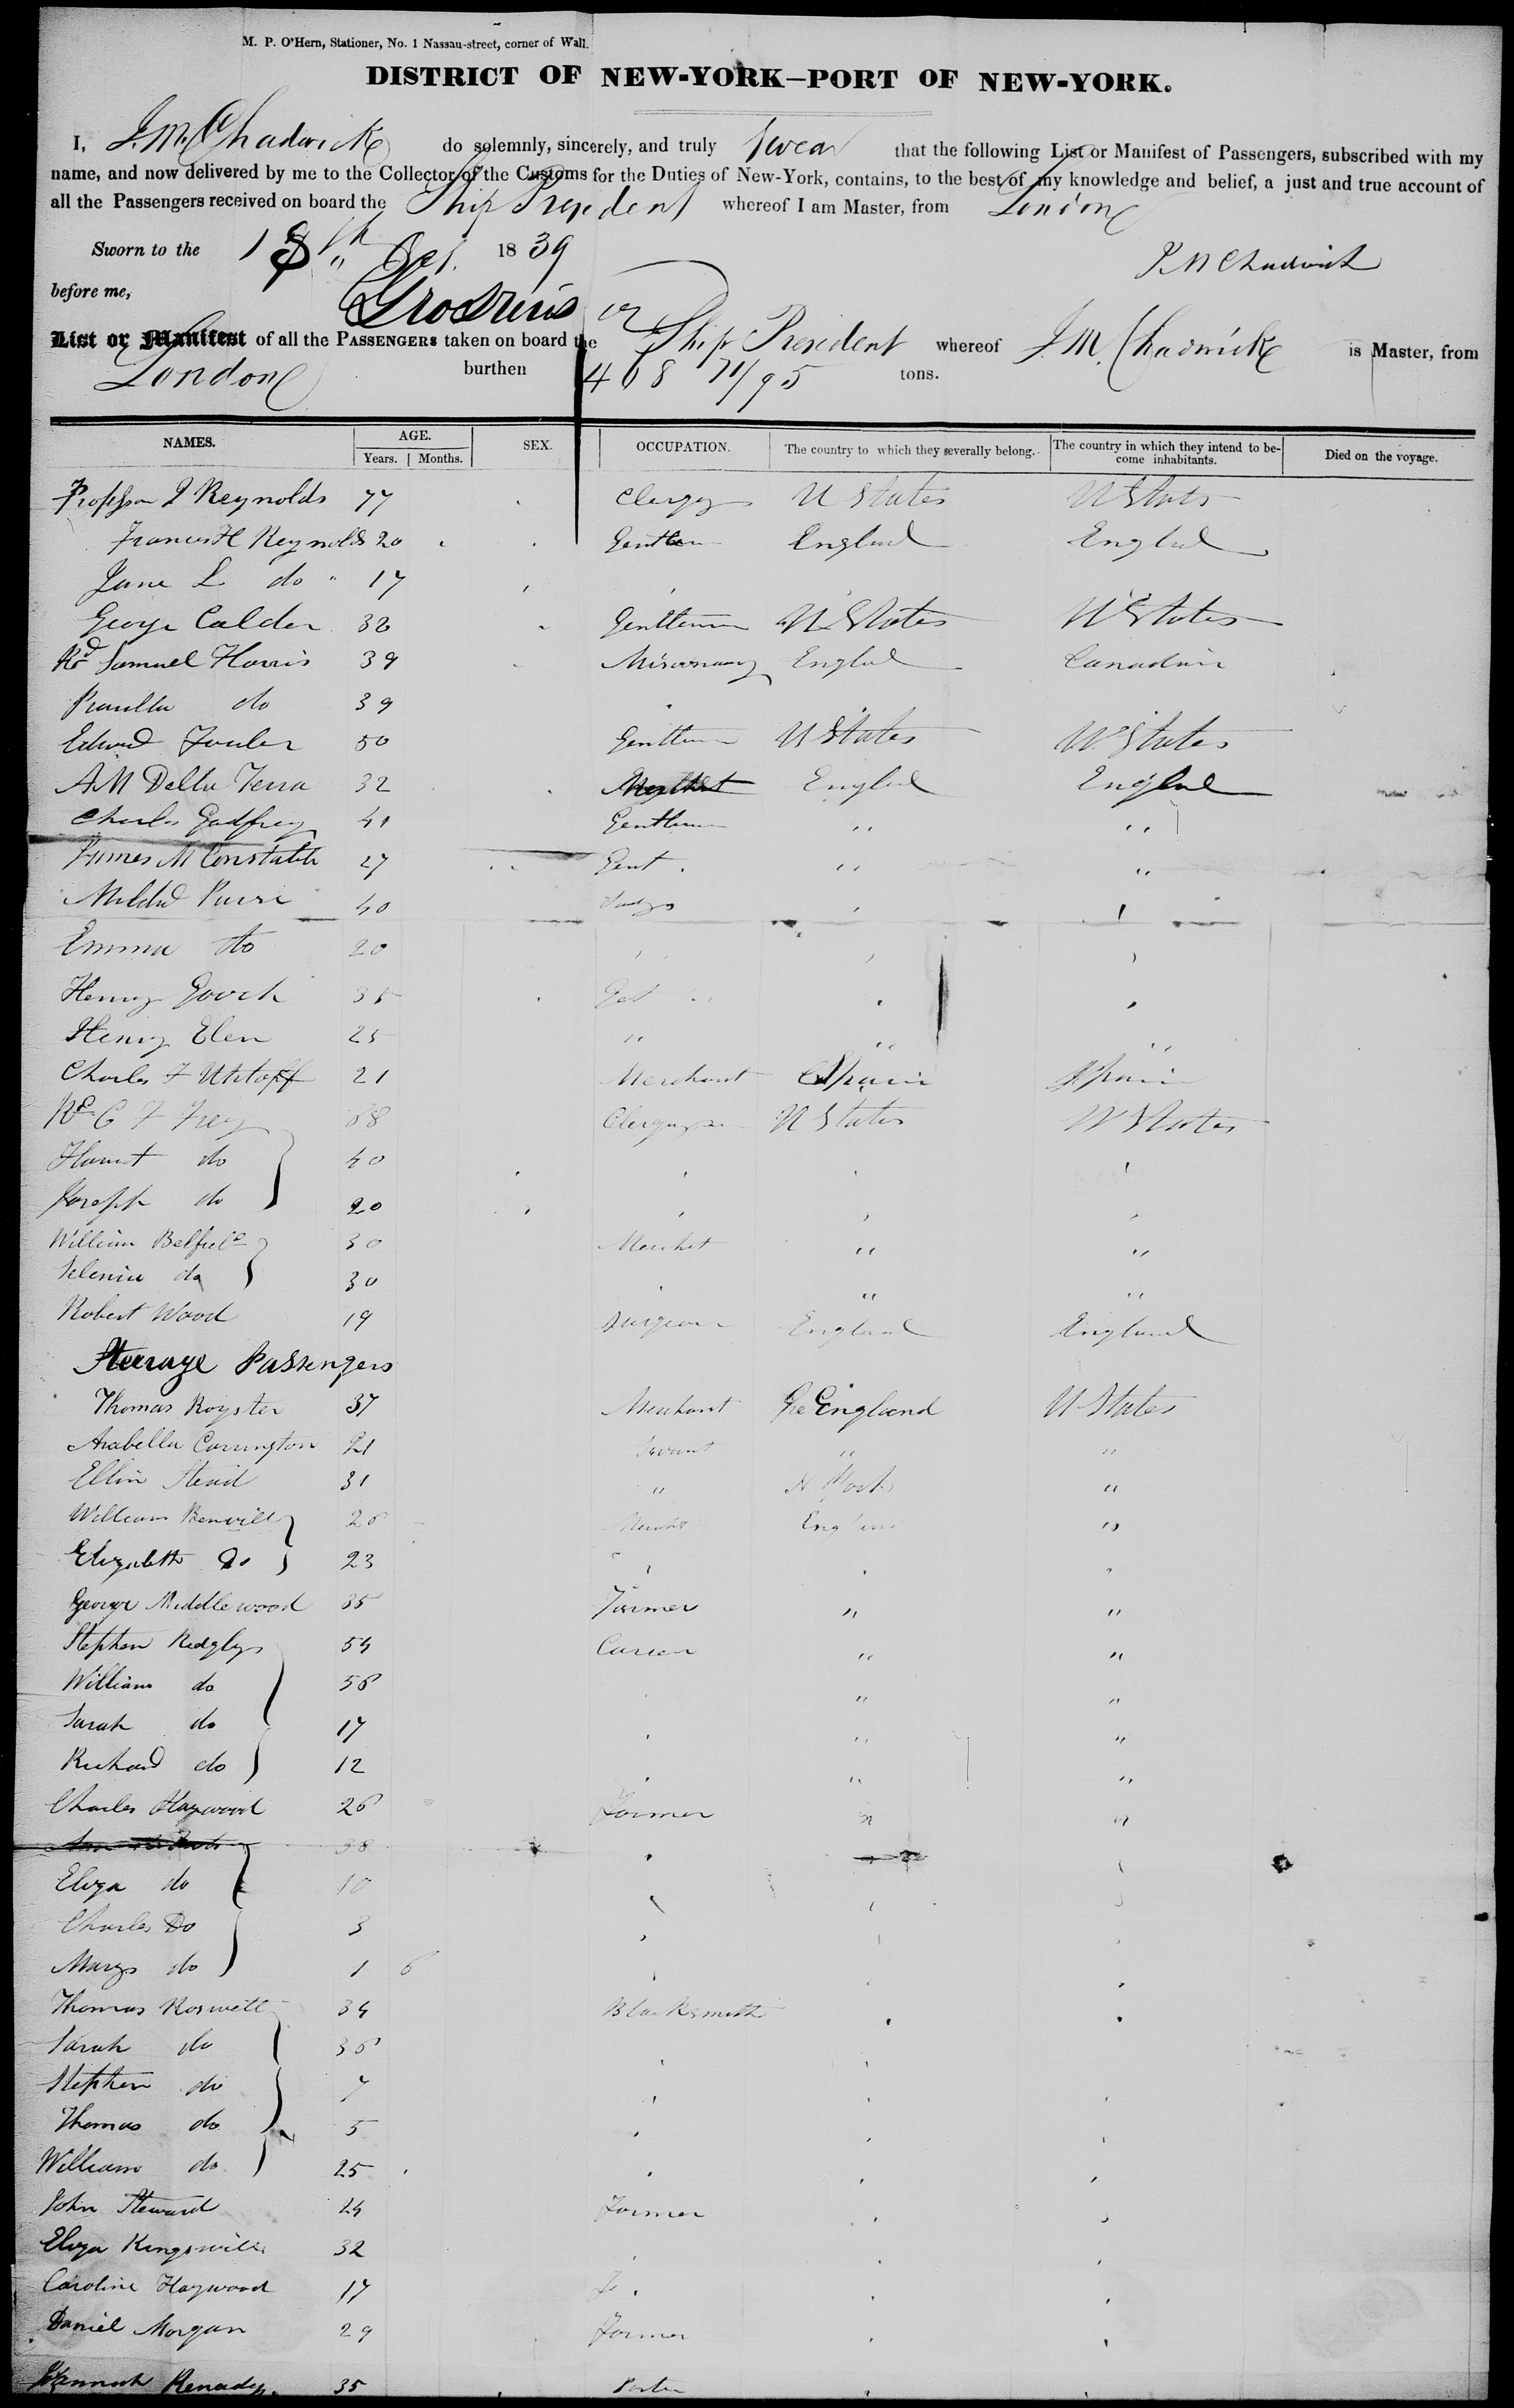 M. P. O'Hern, Stationer, No. 1 Nassau-street, corner of Wall.
DISTRICT OF NEW-YORK—PORT OF NEW-YORK.
I, J. M. Chadwick do solemnly, sincerely, and truly swear that the following List or Manifest of Passengers, subscribed with my
name, and now delivered by me to the Collector of the Customs for the Duties of New-York, contains, to the best of my knowledge and belief, a just and true account of
all the Passengers received on board the Ship President whereof I am Master, from London
Sworn to the 18th Oct. 1839
J M Chadwick
before me,
List or Manifest of all the PASSENGERS taken on board the Ship President whereof J. M. Chadwick is Master, from
London burthen 468 71/95 tons.
NAMES. AGE. SEX. OCCUPATION. The country to which they severally belong. The country in which they intend to be-come inhabitants. Died on the voyage.
Years. Months.
J Reynolds 77 Clergy U States U States
Frances H Reynolds 20 England England
Jane L do 17
George Calder 32 Gentleman U States U States
Rd Samuel Harris 39 Missionary England Canadian
do 39
Edward Fowler 50 Gentleman U States U States
A M Della Terra 32 England England
Charles Godfrey 41 Gentleman " "
James M Constable 27 Gent. " "
40
Emma do 20
Henry Gooch 35
Henry Elen 25 " "
Charles F Uhtoff 21 Merchant Spain Spain
Rd C F Frey 68 Clergyman U States U States
Harriet do 40
Joseph do 20
William 30 " "
Selenia do 30 " "
Robert Wood 19 Surgeon England England
Steerage Passengers
Thomas Royster 37 Merchant England U States
Arabella Carrington 21 Servant " "
Ellin Stead 31 " N York "
William Benwill 26 England "
Elizabeth Do 23
George Middlewood 35 Farmer " "
Stephen Ridgly 54 " "
William do 56 " "
Sarah do 17 " "
Richard do 12 " "
Charles Haywood 26 Farmer " "
38
Eliza do 10
Charles Do 3
Mary do 1 6
Thomas Roswell 34 Blacksmith
Sarah do 36
Stephen do 7
Thomas do 5
William do 25
John Steward 24 Farmer
Eliza Kingswill 32
Caroline Haywood 17
Daniel Morgan 29 Farmer
Hannah 35